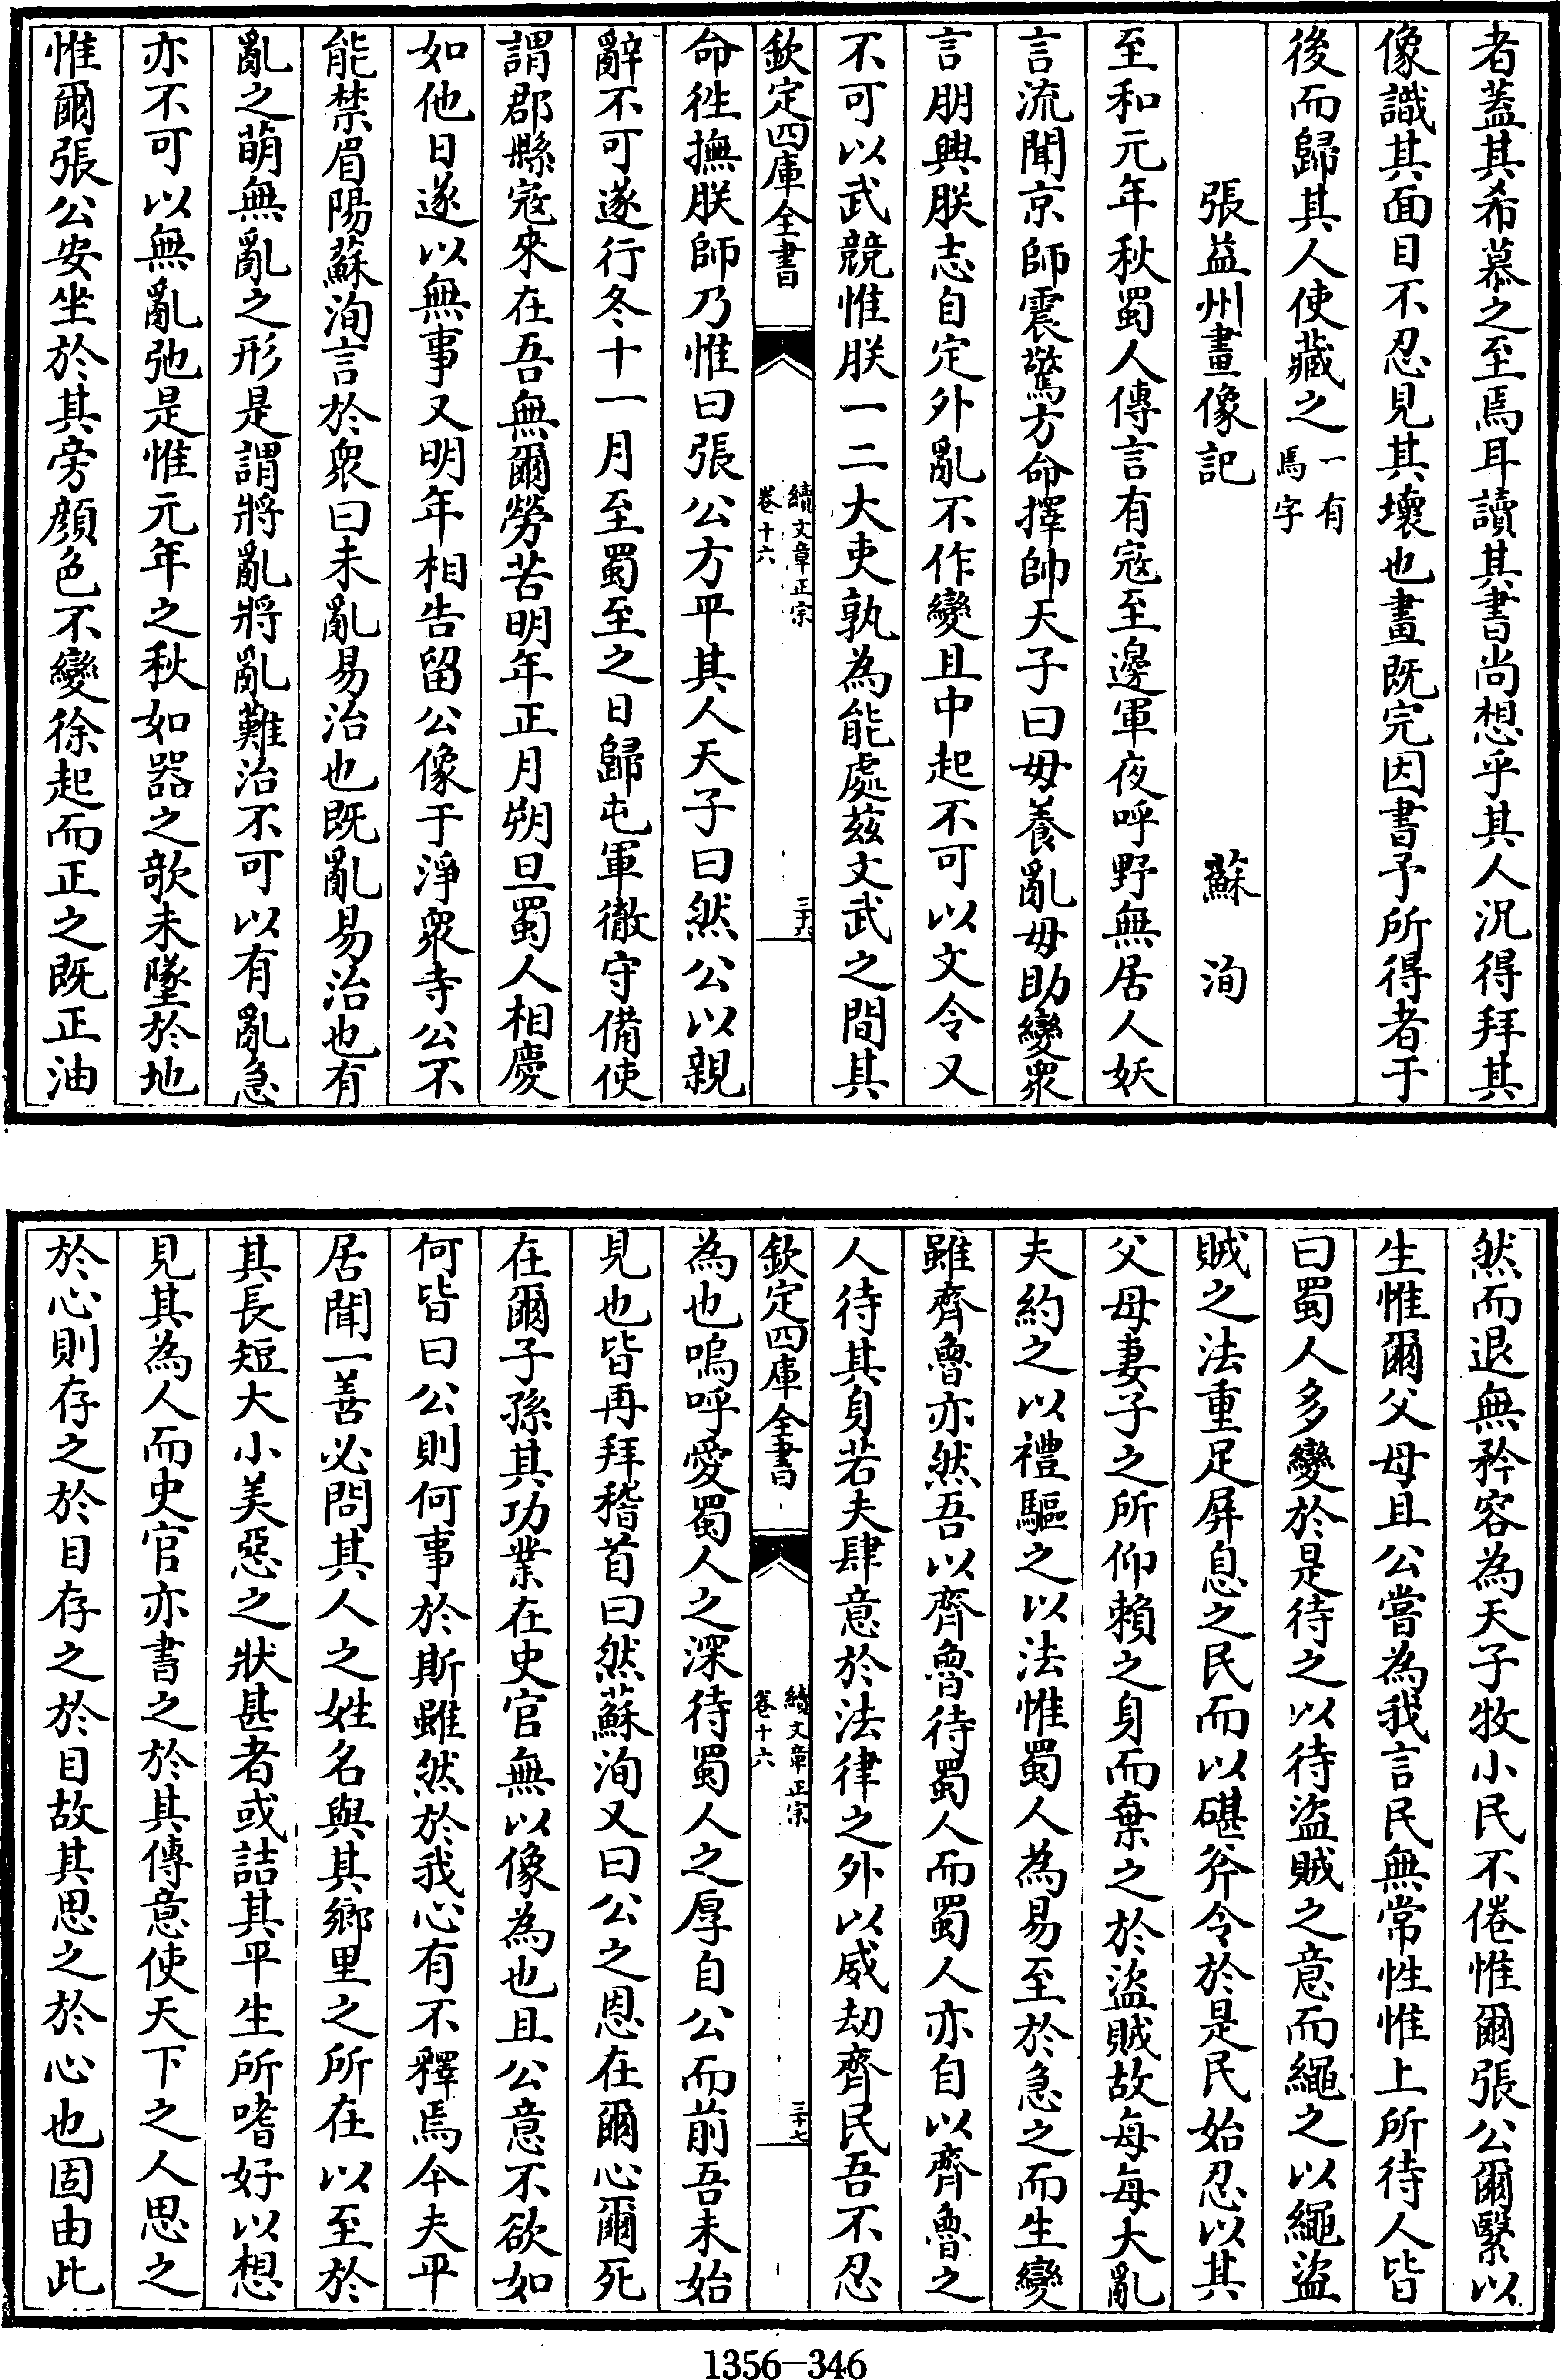 者蓋其希慕之至焉耳讀其書尚想乎其人況得拜其
像識其面目不忍見其壞也畫既完因書予所得者于
後而歸其人使藏之一有焉字
張益州畫像記 蘇洵
至和元年秋蜀人傳言有寇至邊軍夜呼野無居人妖
言流聞京師震驚方命擇帥天子曰毋養亂毋助變衆
言朋興朕志自定外亂不作變且中起不可以文令又
不可以武競惟朕一二大吏孰為能處茲文武之間其
欽定四庫全書 續文章正宗 卷十六 三十六
命往撫朕師乃惟曰張公方平其人天子曰然公以親
辭不可遂行冬十一月至蜀至之日歸屯軍徹守備使
謂郡縣寇來在吾無爾勞苦明年正月朔旦蜀人相慶
如他日遂以無事又明年相告留公像于淨衆寺公不
能禁眉陽蘇洵言於衆曰未亂易治也既亂易治也有
亂之萌無亂之形是謂將亂將亂難治不可以有亂急
亦不可以無亂弛是惟元年之秋如器之欹未墜於地
惟爾張公安坐於其旁顔色不變徐起而正之既正油
然而退無矜容為天子牧小民不倦惟爾張公爾繄以
生惟爾父母且公嘗為我言民無常性惟上所待人皆
曰蜀人多變於是待之以待盜賊之意而繩之以繩盜
賊之法重足屏息之民而以碪斧令於是民始忍以其
父母妻子之所仰賴之身而棄之於盜賊故每每大亂
夫約之以禮驅之以法惟蜀人為易至於急之而生變
雖齊魯亦然吾以齊魯待蜀人而蜀人亦自以齊魯之
人待其身若夫肆意於法律之外以威劫齊民吾不忍
欽定四庫全書 續文章正宗 卷十六 三十七
為也嗚呼愛蜀人之深待蜀人之厚自公而前吾未始
見也皆再拜稽首曰然蘇洵又曰公之恩在爾心爾死
在爾子孫其功業在史官無以像為也且公意不欲如
何皆曰公則何事於斯雖然於我心有不釋焉今夫平
居聞一善必問其人之姓名與其鄉里之所在以至於
其長短大小美惡之狀甚者或詰其平生所嗜好以想
見其為人而史官亦書之於其傳意使天下之人思之
於心則存之於目存之於目故其思之於心也固由此
1356-346